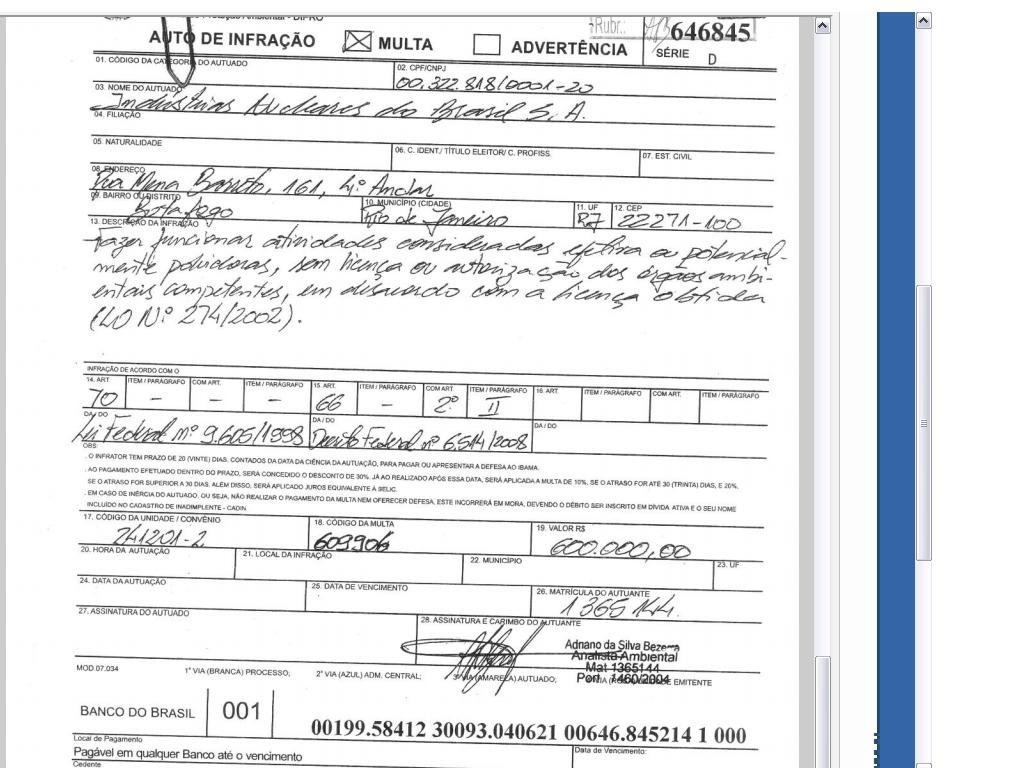 Ambiental - DIPRO
Rubr.: 646845
AUTO DE INFRAÇÃO MULTA ADVERTÊNCIA SÉRIE D
01. CÓDIGO DA CATEGORIA DO AUTUADO 02. CPF/CNPJ
00.322.818/0001-20
03. NOME DO AUTUADO
Indústrias Nucleares do Brasil S.A.
04. FILIAÇÃO
05 NATURALIDADE 06. C. IDENT./ TÍTULO ELEITOR/ C. PROFISS. 07. EST. CIVIL
08. ENDEREÇO
Rua Mena Barreto, 161, 4º Andar
09. BAIRRO OU DISTRITO 10. MUNICÍPIO (CIDADE) 11. UF 12. CEP
Botafogo Rio de Janeiro RJ 22271-100
13. DESCRIÇÃO DA INFRAÇÃO
Fazer funcionar atividades consideradas efetiva ou potencial-
mente poluidoras, sem licença ou autorização dos órgãos ambi-
entais competentes, em desacordo com a licença obtida
(LO Nº 274/2002).
INFRAÇÃO DE ACORDO COM O
14. ART. ITEM / PARÁGRAFO COM ART. ITEM / PARÁGRAFO 15. ART. ITEM / PARÁGRAFO COM ART. ITEM / PARÁGRAFO 16. ART. ITEM / PARÁGRAFO COM ART. ITEM / PARÁGRAFO
70 - - - 66 - 2º II
DA / DO DA / DO DA / DO
Lei Federal nº 9.605/1998 Decreto Federal nº 6.514/2008
OBS:
. O INFRATOR TEM PRAZO DE 20 (VINTE) DIAS. CONTADOS DA DATA DA CIÊNCIA DA AUTUAÇÃO, PARA PAGAR OU APRESENTAR A DEFESA AO IBAMA.
. AO PAGAMENTO EFETUADO DENTRO DO PRAZO, SERÁ CONCEDIDO O DESCONTO DE 30%. JÁ AO REALIZADO APÓS ESSA DATA, SERÁ APLICADA A MULTA DE 10%, SE O ATRASO FOR ATÉ 30 (TRINTA) DIAS, E 20%,
SE O ATRASO FOR SUPERIOR A 30 DIAS. ALÉM DISSO, SERÁ APLICADO JUROS EQUIVALENTE À SELIC.
. EM CASO DE INÉRCIA DO AUTUADO. OU SEJA, NÃO REALIZAR O PAGAMENTO DA MULTA NEM OFERECER DEFESA, ESTE INCORRERÁ EM MORA, DEVENDO O DÉBITO SER INSCRITO EM DÍVIDA ATIVA E O SEU NOME
INCLUÍDO NO CADASTRO DE INADIMPLENTE - CADIN.
17. CÓDIGO DA UNIDADE / CONVÊNIO 18. CÓDIGO DA MULTA 19. VALOR R$
241201-2 609906 600.000,00
20. HORA DA AUTUAÇÃO 21. LOCAL DA INFRAÇÃO 22. MUNICÍPIO 23. UF
24. DATA DA AUTUAÇÃO 25. DATA DE VENCIMENTO 26. MATRÍCULA DO AUTUANTE
1365144.
27. ASSINATURA DO AUTUADO 28. ASSINATURA E CARIMBO DO AUTUANTE
Adriano da Silva Bezerra
Analista Ambiental
Mat 1365144
Port. 1460/2004
MOD.07.034 1ª VIA (BRANCA) PROCESSO; 2ª VIA (AZUL) ADM. CENTRAL; 3ª VIA (AMARELA) AUTUADO; EMITENTE
BANCO DO BRASIL 001 00199.58412 30093.040621 00646.845214 1 000
Local de Pagamento
Pagável em qualquer Banco até o vencimento Data de Vencimento:
Cedente